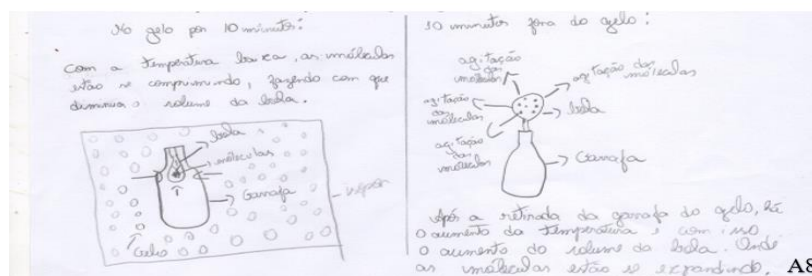 No gelo por 10 minutos:
Com a temperatura baixa, as moléculas
estão se comprimindo, fazendo com que
diminua o volume da bola.
bola
moléculas
Garrafa
isopor
Gelo
10 minutos fora do gelo:
agitação
das
moléculas
agitação das
moléculas
agitação
das
moléculas
bola
agitação
das
moléculas
Garrafa
Após a retirada da garrafa do gelo, há
o aumento da temperatura e com isso
o aumento do volume da bola. Onde
as moléculas estão se expandindo.
A8